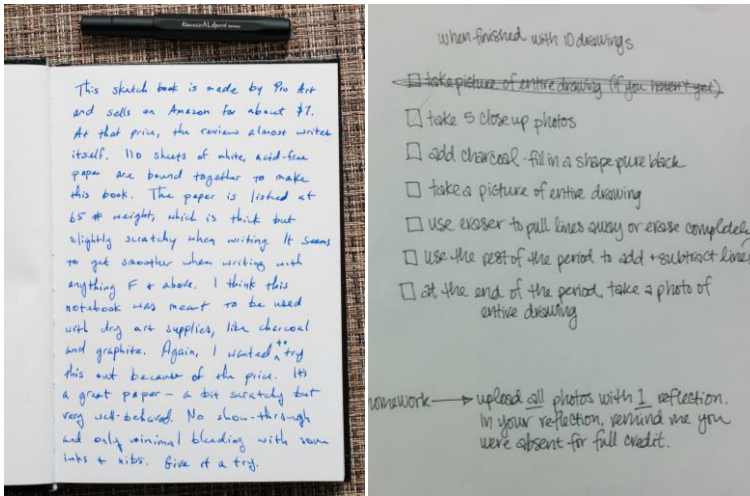 Kaweco AL Sport
This sketch book is made by Pro Art
and sells on Amazon for about $7.
At that price, the review almost writes
itself. 110 sheets of white, acid-free
paper are bound together to make
this book. The paper is listed at
65 # weight, which is thick but
slightly scratchy when writing. It seems
to get smoother when writing with
anything F + above. I think this
notebook was meant to be used
with dry art supplies, like charcoal
and graphite. Again, I wanted to try
this out because of the price. It's
a great paper - a bit scratchy but
very well-behaved. No show-through
and only minimal bleeding with some
inks + nibs. Give it a try.
when finished with 10 drawings
take picture of entire drawing (if you haven't yet)
take 5 close up photos
add charcoal - fill in a shape pure black
take a picture of entire drawing
use eraser to pull lines away or erase completely
use the rest of the period to add + subtract lines
at the end of the period, take a photo of
entire drawing
homework → upload all photos with 1 reflection.
In your reflection, remind me you
were absent for full credit.